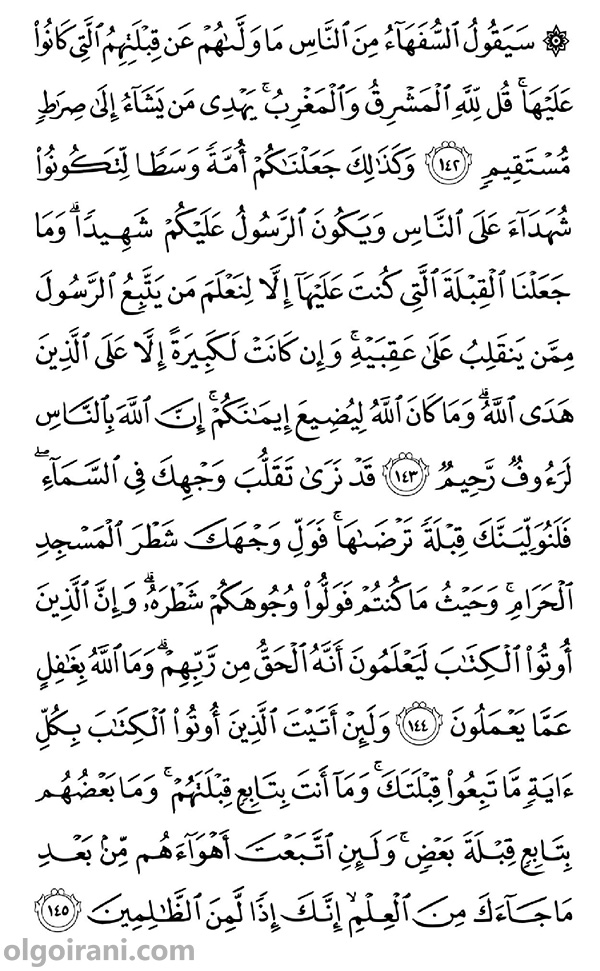 ۞ سَيَقُولُ ٱلسُّفَهَآءُ مِنَ ٱلنَّاسِ مَا وَلَّىٰهُمْ عَن قِبْلَتِهِمُ ٱلَّتِى كَانُوا۟
عَلَيْهَا ۚ قُل لِّلَّهِ ٱلْمَشْرِقُ وَٱلْمَغْرِبُ ۚ يَهْدِى مَن يَشَآءُ إِلَىٰ صِرَٰطٍ
مُّسْتَقِيمٍ ١٤٢ وَكَذَٰلِكَ جَعَلْنَٰكُمْ أُمَّةً وَسَطًا لِّتَكُونُوا۟
شُهَدَآءَ عَلَى ٱلنَّاسِ وَيَكُونَ ٱلرَّسُولُ عَلَيْكُمْ شَهِيدًا ۗ وَمَا
جَعَلْنَا ٱلْقِبْلَةَ ٱلَّتِى كُنتَ عَلَيْهَآ إِلَّا لِنَعْلَمَ مَن يَتَّبِعُ ٱلرَّسُولَ
مِمَّن يَنقَلِبُ عَلَىٰ عَقِبَيْهِ ۚ وَإِن كَانَتْ لَكَبِيرَةً إِلَّا عَلَى ٱلَّذِينَ
هَدَى ٱللَّهُ ۗ وَمَا كَانَ ٱللَّهُ لِيُضِيعَ إِيمَٰنَكُمْ ۚ إِنَّ ٱللَّهَ بِٱلنَّاسِ
لَرَءُوفٌ رَّحِيمٌ ١٤٣ قَدْ نَرَىٰ تَقَلُّبَ وَجْهِكَ فِى ٱلسَّمَآءِ ۖ
فَلَنُوَلِّيَنَّكَ قِبْلَةً تَرْضَىٰهَا ۚ فَوَلِّ وَجْهَكَ شَطْرَ ٱلْمَسْجِدِ
ٱلْحَرَامِ ۚ وَحَيْثُ مَا كُنتُمْ فَوَلُّوا۟ وُجُوهَكُمْ شَطْرَهُۥ ۗ وَإِنَّ ٱلَّذِينَ
أُوتُوا۟ ٱلْكِتَٰبَ لَيَعْلَمُونَ أَنَّهُ ٱلْحَقُّ مِن رَّبِّهِمْ ۗ وَمَا ٱللَّهُ بِغَٰفِلٍ
عَمَّا يَعْمَلُونَ ١٤٤ وَلَئِنْ أَتَيْتَ ٱلَّذِينَ أُوتُوا۟ ٱلْكِتَٰبَ بِكُلِّ
ءَايَةٍ مَّا تَبِعُوا۟ قِبْلَتَكَ ۚ وَمَآ أَنتَ بِتَابِعٍ قِبْلَتَهُمْ ۚ وَمَا بَعْضُهُم
بِتَابِعٍ قِبْلَةَ بَعْضٍ ۚ وَلَئِنِ ٱتَّبَعْتَ أَهْوَآءَهُم مِّنۢ بَعْدِ
مَا جَآءَكَ مِنَ ٱلْعِلْمِ ۙ إِنَّكَ إِذًا لَّمِنَ ٱلظَّٰلِمِينَ ١٤٥
olgoirani.com